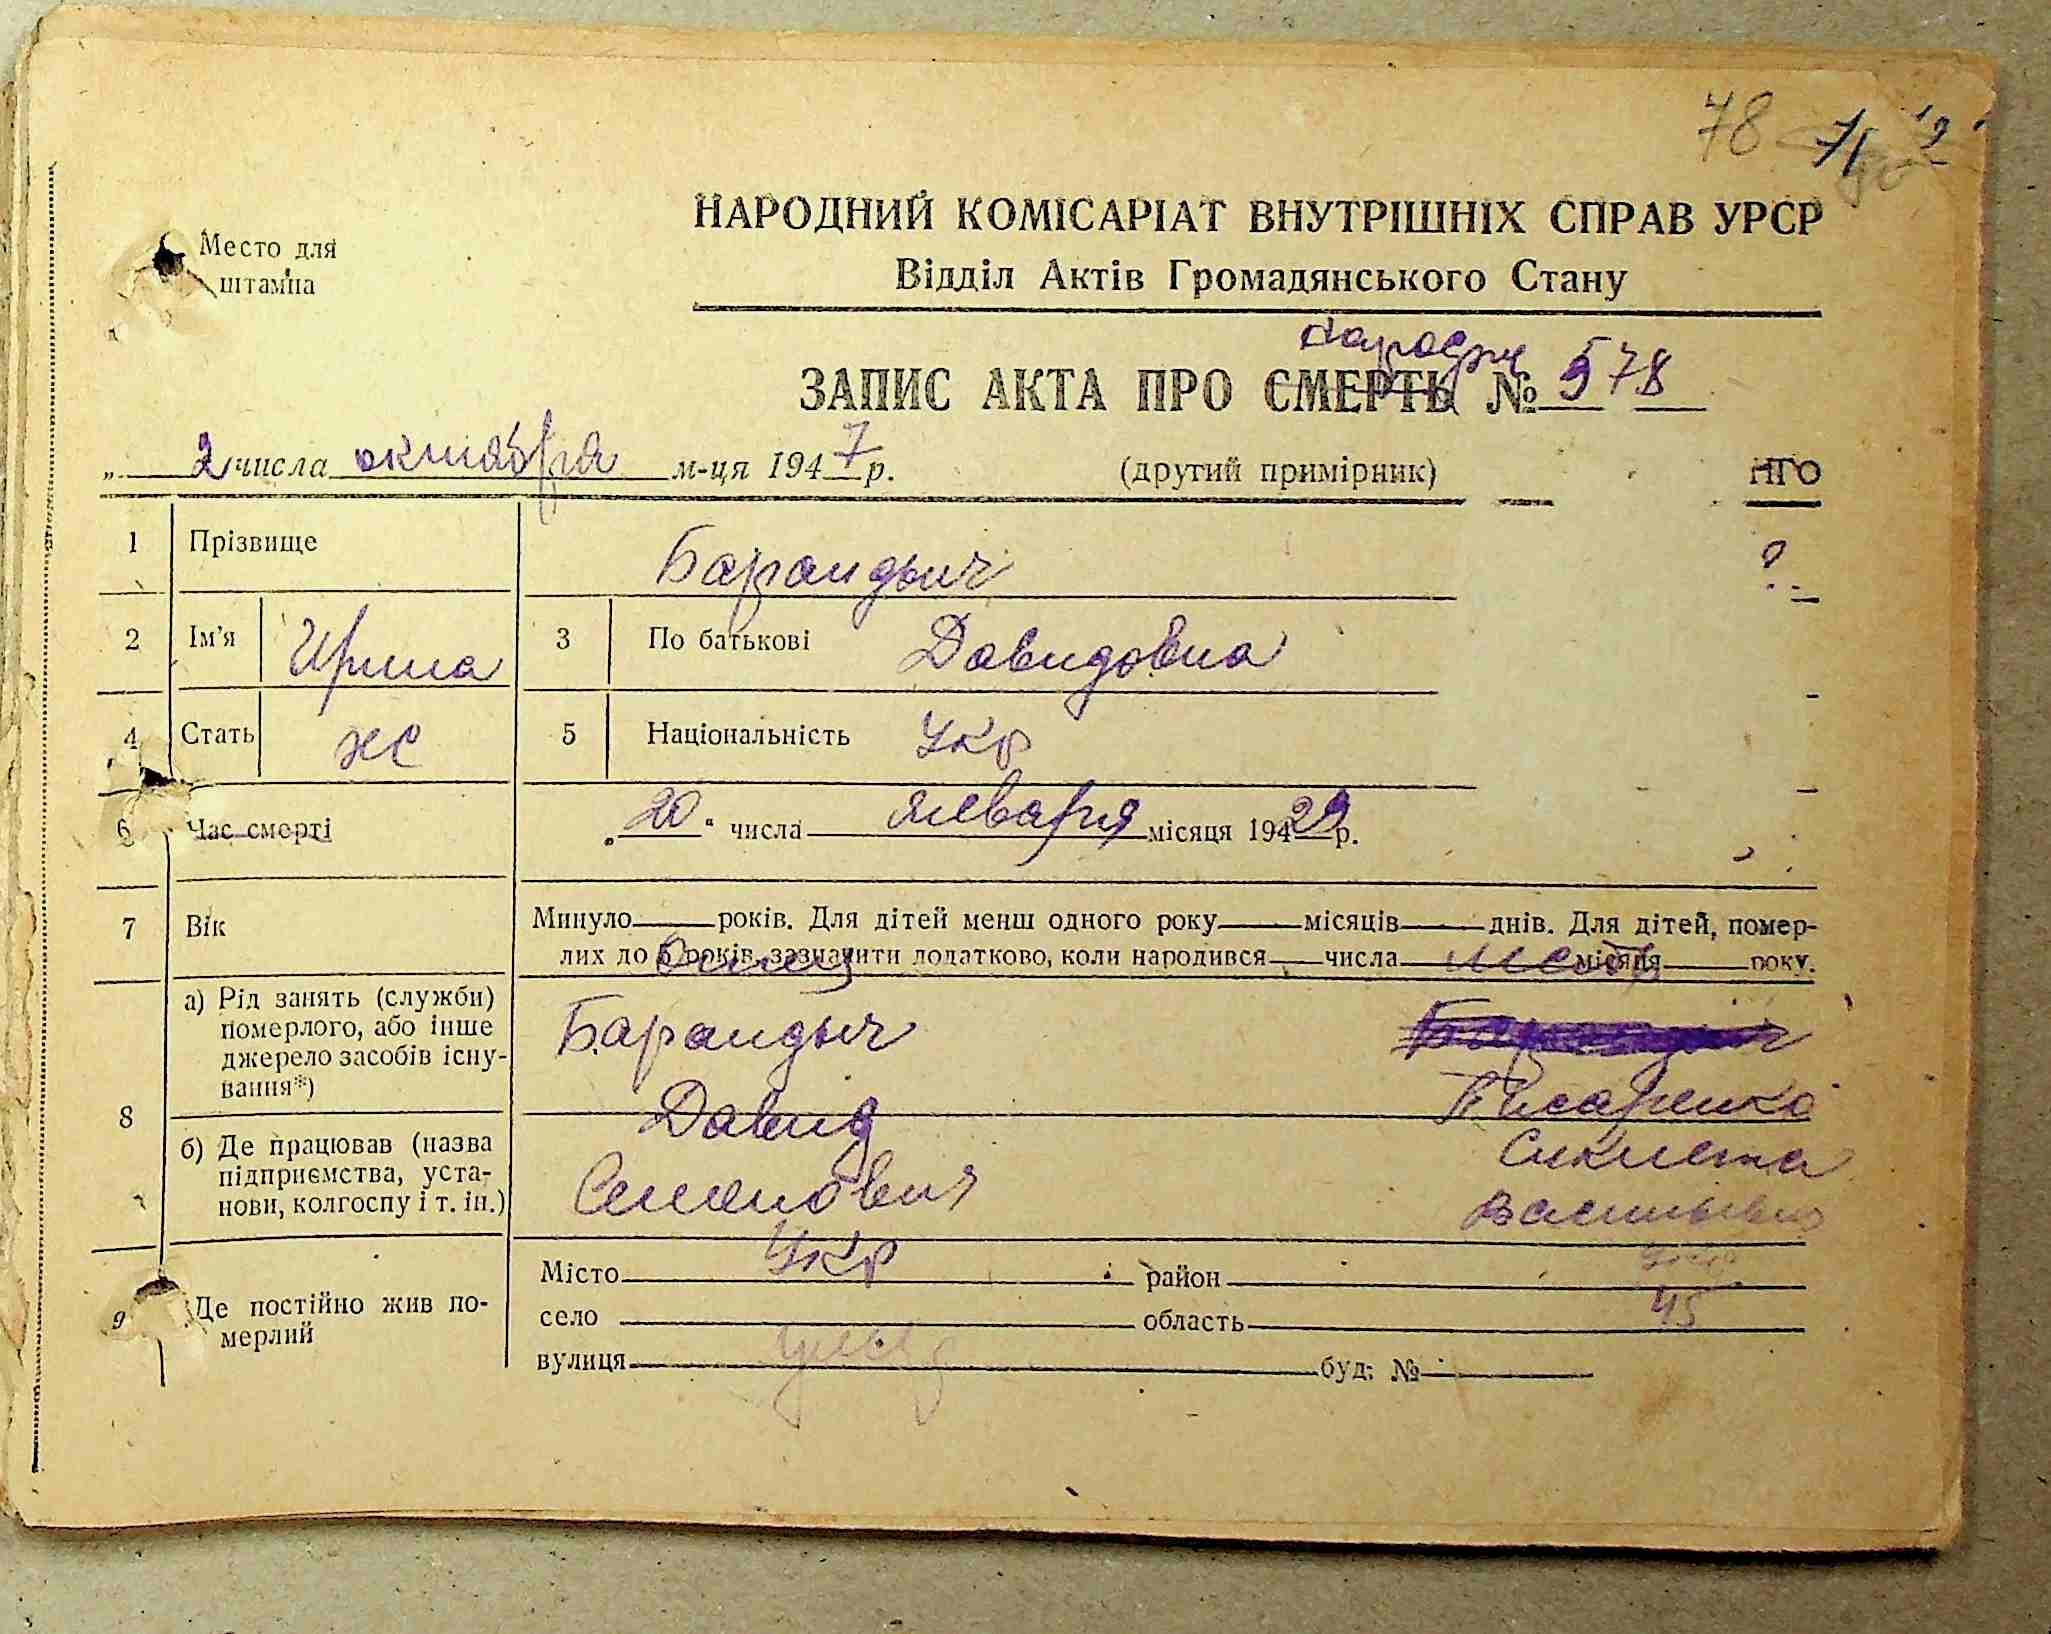 78
НАРОДНИЙ КОМІСАРІАТ ВНУТРІШНІХ СПРАВ УРСР
Место для
штампа
Відділ Актів Громадянського Стану
народж
ЗАПИС АКТА ПРО СМЕРТЬ № 578
„ 2 числа октября м-ця 1947 р. (другий примірник) НГО
1 Прізвище Барандыч
2 Ім'я Ирина 3 По батькові Давидовна
4 Стать ж 5 Національність Укр
6 Час смерті „20" числа января місяця 19429 р.
7 Вік Минуло років. Для дітей менш одного року місяців днів. Для дітей, помер-
лих до 5 років зазначити додатково, коли народився числа місяця року.
Отец Мать
8 а) Рід занять (служби)
померлого, або інше
джерело засобів існу-
вання*)
б) Де працював (назва
підприємства, уста-
нови, колгоспу і т. ін.)
Барандыч
Давид
Семенович
Укр
Барандыч
Писаренко
Васильевна
Укр
45
9 Де постійно жив по-
мерлий
Місто район
село область
вулиця буд. №